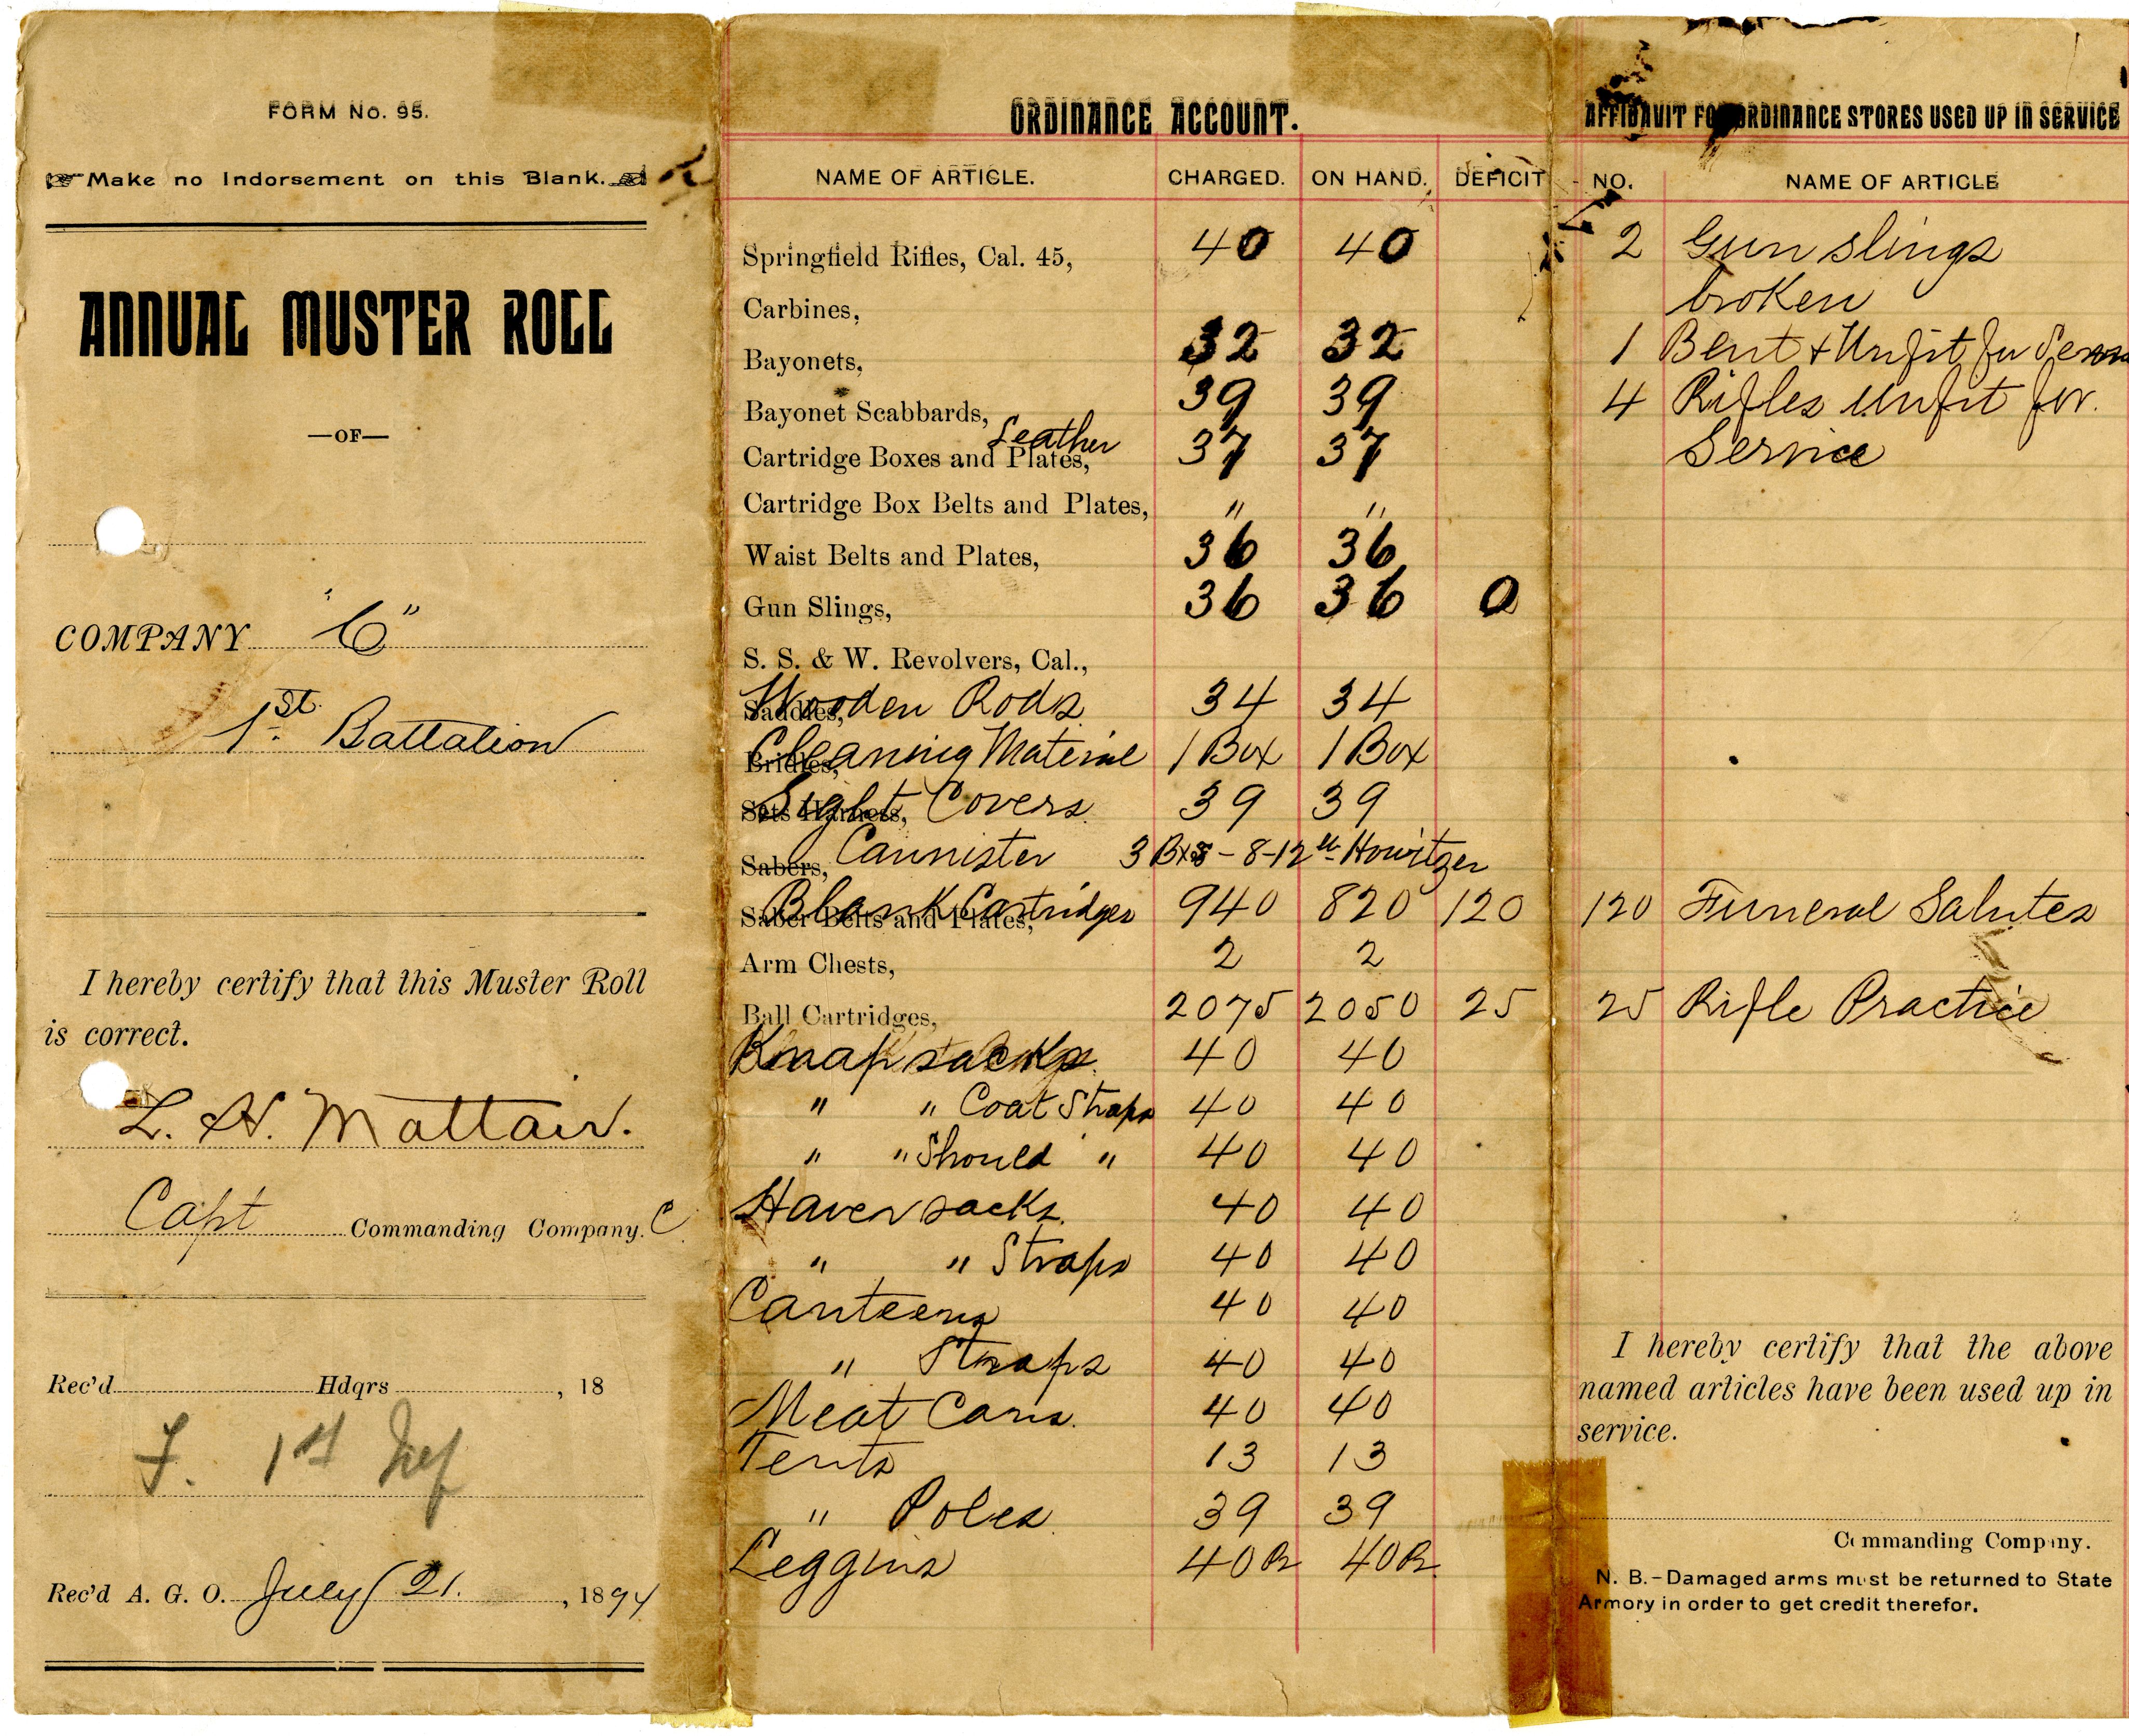 FORM No. 95.
Make no Indorsement on this Blank.
ANNUAL MUSTER ROLL
—OF—
COMPANY "C"
1st Battalion
I hereby certify that this Muster Roll
is correct.
L. H. Mattair.
Capt Commanding Company. C
Rec'd Hdqrs , 18
F. 1st
Rec'd A. G. O. July 21. , 1894
ORDINANCE ACCOUNT.
NAME OF ARTICLE. CHARGED. ON HAND. DEFICIT
Springfield Rifles, Cal. 45, 40 40
Carbines,
Bayonets, 32 32
Bayonet Scabbards, 39 39
Leather
Cartridge Boxes and Plates, 37 37
Cartridge Box Belts and Plates, " "
Waist Belts and Plates, 36 36
Gun Slings, 36 36 0
S. S. & W. Revolvers, Cal.,
Saddles, Wooden Rods 34 34
Bridles, Cleaning Material 1 Box 1 Box
Sets Harness, Sight Covers 39 39
Sabers, Cannister 3 Bxs - 8-12 Howitzer
Saber Belts and Plates, Blank Cartridges 940 820 120
Arm Chests, 2 2
Ball Cartridges, 2075 2050 25
Knapsacks. 40 40
" " Coat Straps 40 40
" " Should " 40 40
Haversacks. 40 40
" " Straps 40 40
Canteens 40 40
" Straps 40 40
Meat Cans. 40 40
Tents 13 13
" Poles 39 39
Leggins 40 40
AFFIDAVIT FOR ORDINANCE STORES USED UP IN SERVICE
NO. NAME OF ARTICLE
2 Gun slings
broken
1 Bent + Unfit for
4 Rifles unfit for.
Service
120 Funeral Salutes
25 Rifle Practice
I hereby certify that the above
named articles have been used up in
service.
Commanding Company.
N. B.-Damaged arms must be returned to State
Armory in order to get credit therefor.